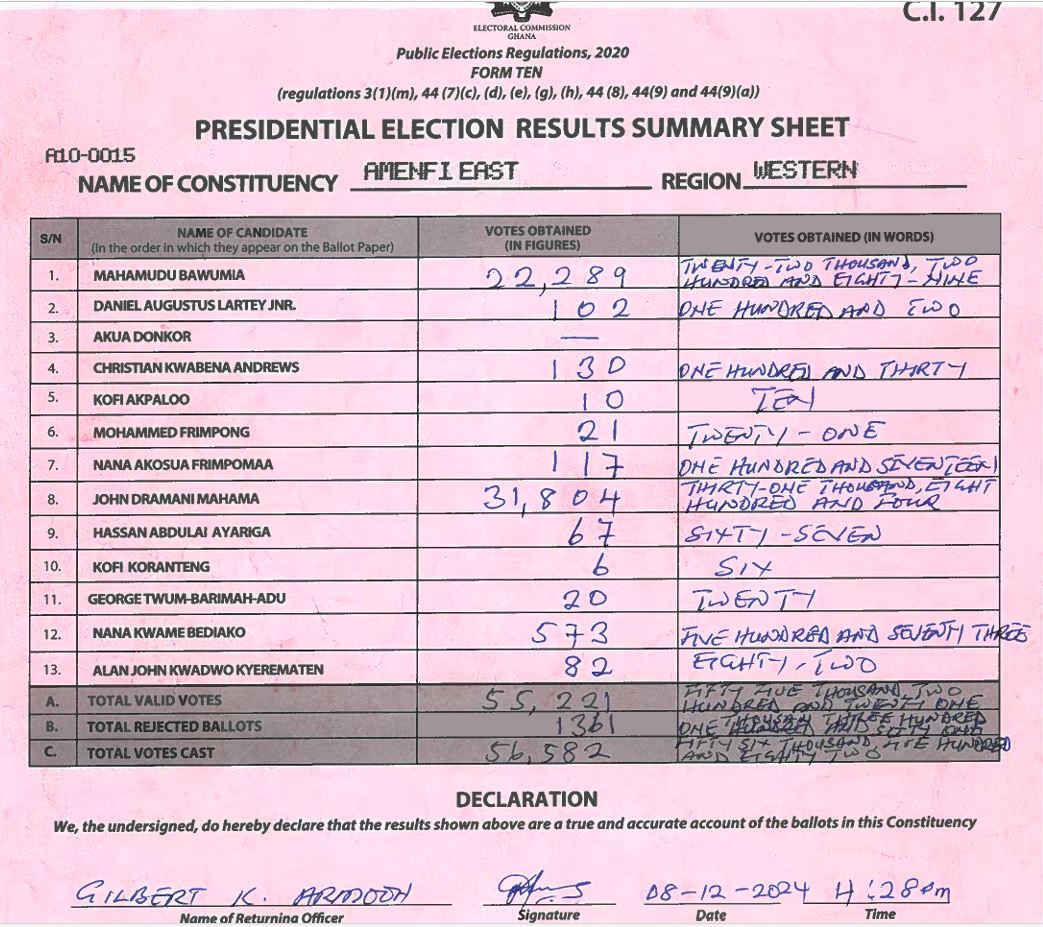 C.I. 127
ELECTORAL COMMISSION
GHANA
Public Elections Regulations, 2020
FORM TEN
(regulations 3(1)(m), 44 (7)(c), (d), (e), (g), (h), 44 (8), 44(9) and 44(9)(a))
PRESIDENTIAL ELECTION RESULTS SUMMARY SHEET
A10-0015
NAME OF CONSTITUENCY AMENFI EAST REGION WESTERN
S/N NAME OF CANDIDATE (In the order in which they appear on the Ballot Paper) VOTES OBTAINED (IN FIGURES) VOTES OBTAINED (IN WORDS)
1. MAHAMUDU BAWUMIA 22,289 TWENTY-TWO THOUSAND, TWO HUNDRED AND EIGHTY-NINE
2. DANIEL AUGUSTUS LARTEY JNR. 102 ONE HUNDRED AND TWO
3. AKUA DONKOR —
4. CHRISTIAN KWABENA ANDREWS 130 ONE HUNDRED AND THIRTY
5. KOFI AKPALOO 10 TEN
6. MOHAMMED FRIMPONG 21 TWENTY-ONE
7. NANA AKOSUA FRIMPOMAA 117 ONE HUNDRED AND SEVENTEEN
8. JOHN DRAMANI MAHAMA 31,804 THIRTY-ONE THOUSAND, EIGHT HUNDRED AND FOUR
9. HASSAN ABDULAI AYARIGA 67 SIXTY-SEVEN
10. KOFI KORANTENG 6 SIX
11. GEORGE TWUM-BARIMAH-ADU 20 TWENTY
12. NANA KWAME BEDIAKO 573 FIVE HUNDRED AND SEVENTY THREE
13. ALAN JOHN KWADWO KYEREMATEN 82 EIGHTY-TWO
A. TOTAL VALID VOTES 55,221 FIFTY FIVE THOUSAND TWO HUNDRED AND TWENTY ONE
B. TOTAL REJECTED BALLOTS 1361 ONE THOUSAND THREE HUNDRED AND SIXTY ONE
C. TOTAL VOTES CAST 56,582 FIFTY SIX THOUSAND FIVE HUNDRED AND EIGHTY TWO
DECLARATION
We, the undersigned, do hereby declare that the results shown above are a true and accurate account of the ballots in this Constituency
GILBERT K. 08-12-2024 4:28am
Name of Returning Officer Signature Date Time